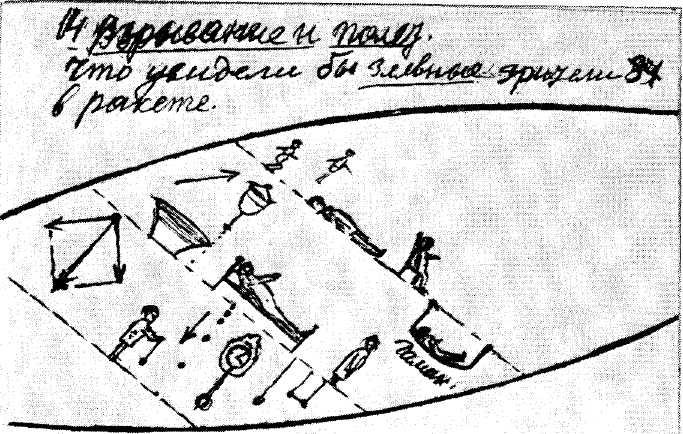 14 Взрывание и полет.
Что увидели бы земные зрители 37
в ракете.
Гамак.